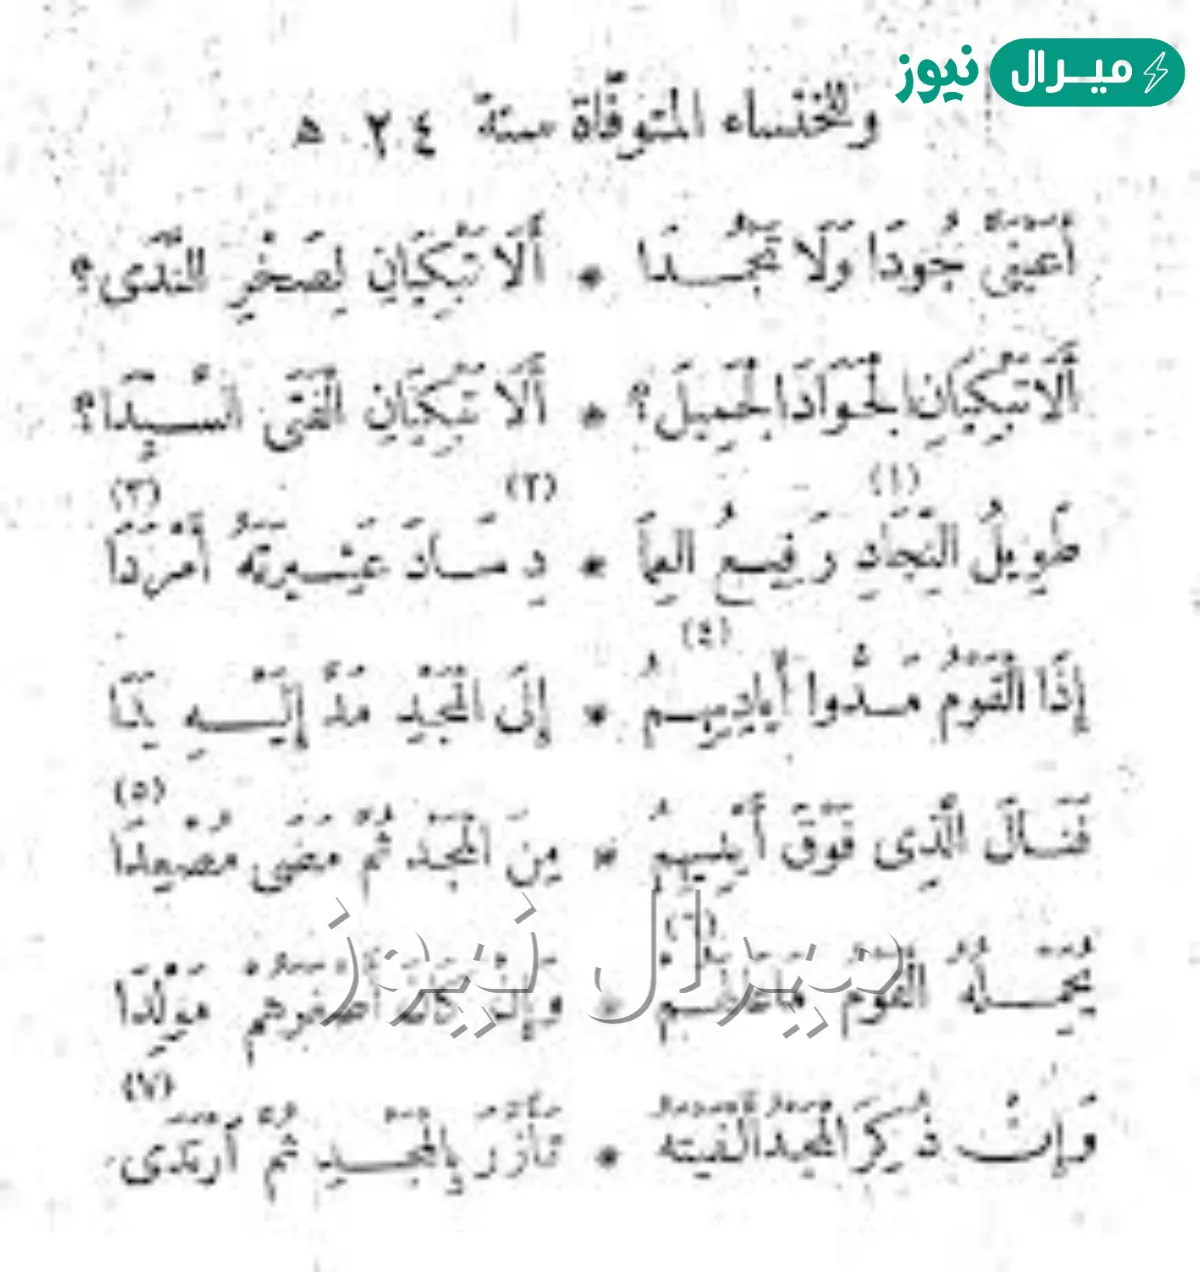 ميرال نيوز
وللخنساء المتوفّاة سنة ٢٤ ه
أَعَيْنَىَّ جُودَا وَلَا تَجْمُدَا * أَلَا تَبْكِيَانِ لِصَخْرِ النَّدَى؟
أَلَا تَبْكِيَانِ الْجَوَادَ الْجَمِيلَ؟ * أَلَا تَبْكِيَانِ الْفَتَى السَّيِّدَا؟
طَوِيلُ النِّجَادِ (١) رَفِيعُ الْعِمَا * دِ (٢) سَادَ عَشِيرَتَهُ أَمْرَدَا (٣)
إِذَا الْقَوْمُ مَدُّوا أَيَادِيهِمُ (٤) * إِلَى الْمَجْدِ مَدَّ إِلَيْهِ يَدَا
فَنَالَ الَّذِى فَوْقَ أَيْدِيهِمُ * مِنَ الْمَجْدِ ثُمَّ مَضَى مُصْعِدَا (٥)
يُحَمِّلُهُ الْقَوْمُ مَا عَالَهُمْ (٦) * وَإِنْ كَانَ أَصْغَرَهُمْ مَوْلِدَا
وَإِنْ ذُكِرَ الْمَجْدُ أَلْفَيْتَهُ * تَأَزَّرَ بِالْمَجْدِ ثُمَّ ارْتَدَى (٧)
ميرال نيوز